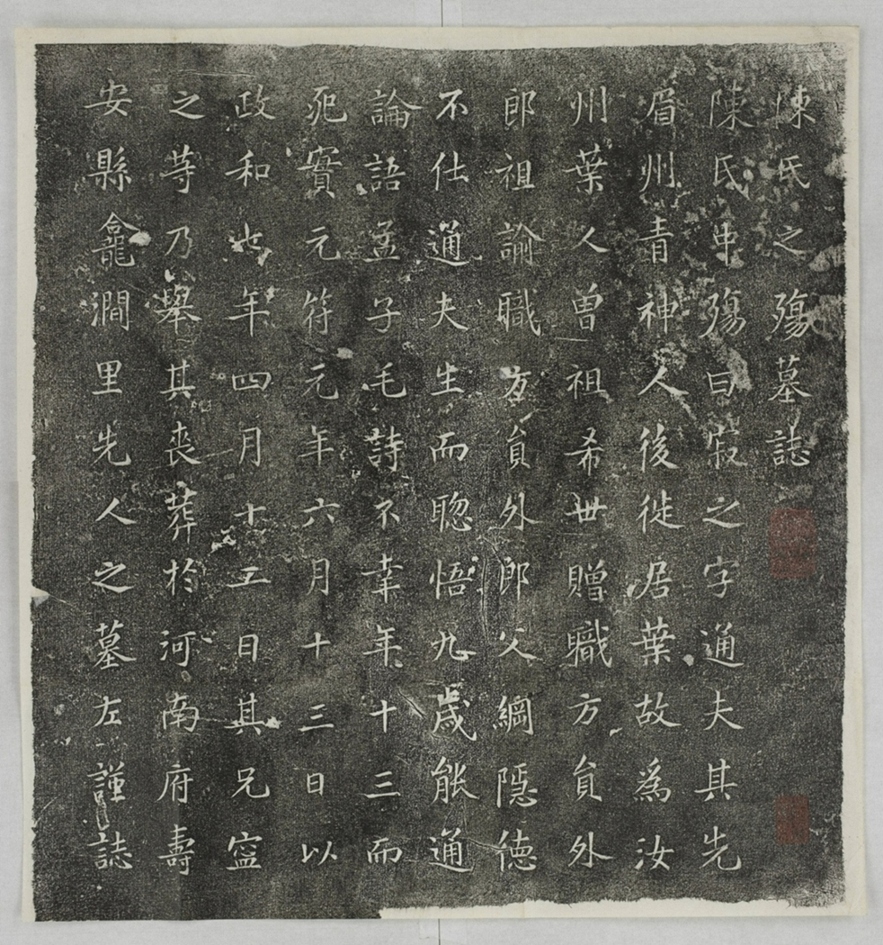 陳氏之殤墓誌
陳氏中殤曰寂之字通夫其先
眉州青神人後徙居葉故為汝
州葉人曾祖希世贈職方員外
郎祖諭職方員外郎父綱隱德
不仕通夫生而聰悟九歲能通
論語孟子毛詩不幸年十三而
死實元符元年六月十三日以
政和七年四月十五日其兄寧
之等乃舉其喪葬於河南府壽
安縣龕澗里先人之墓左謹誌